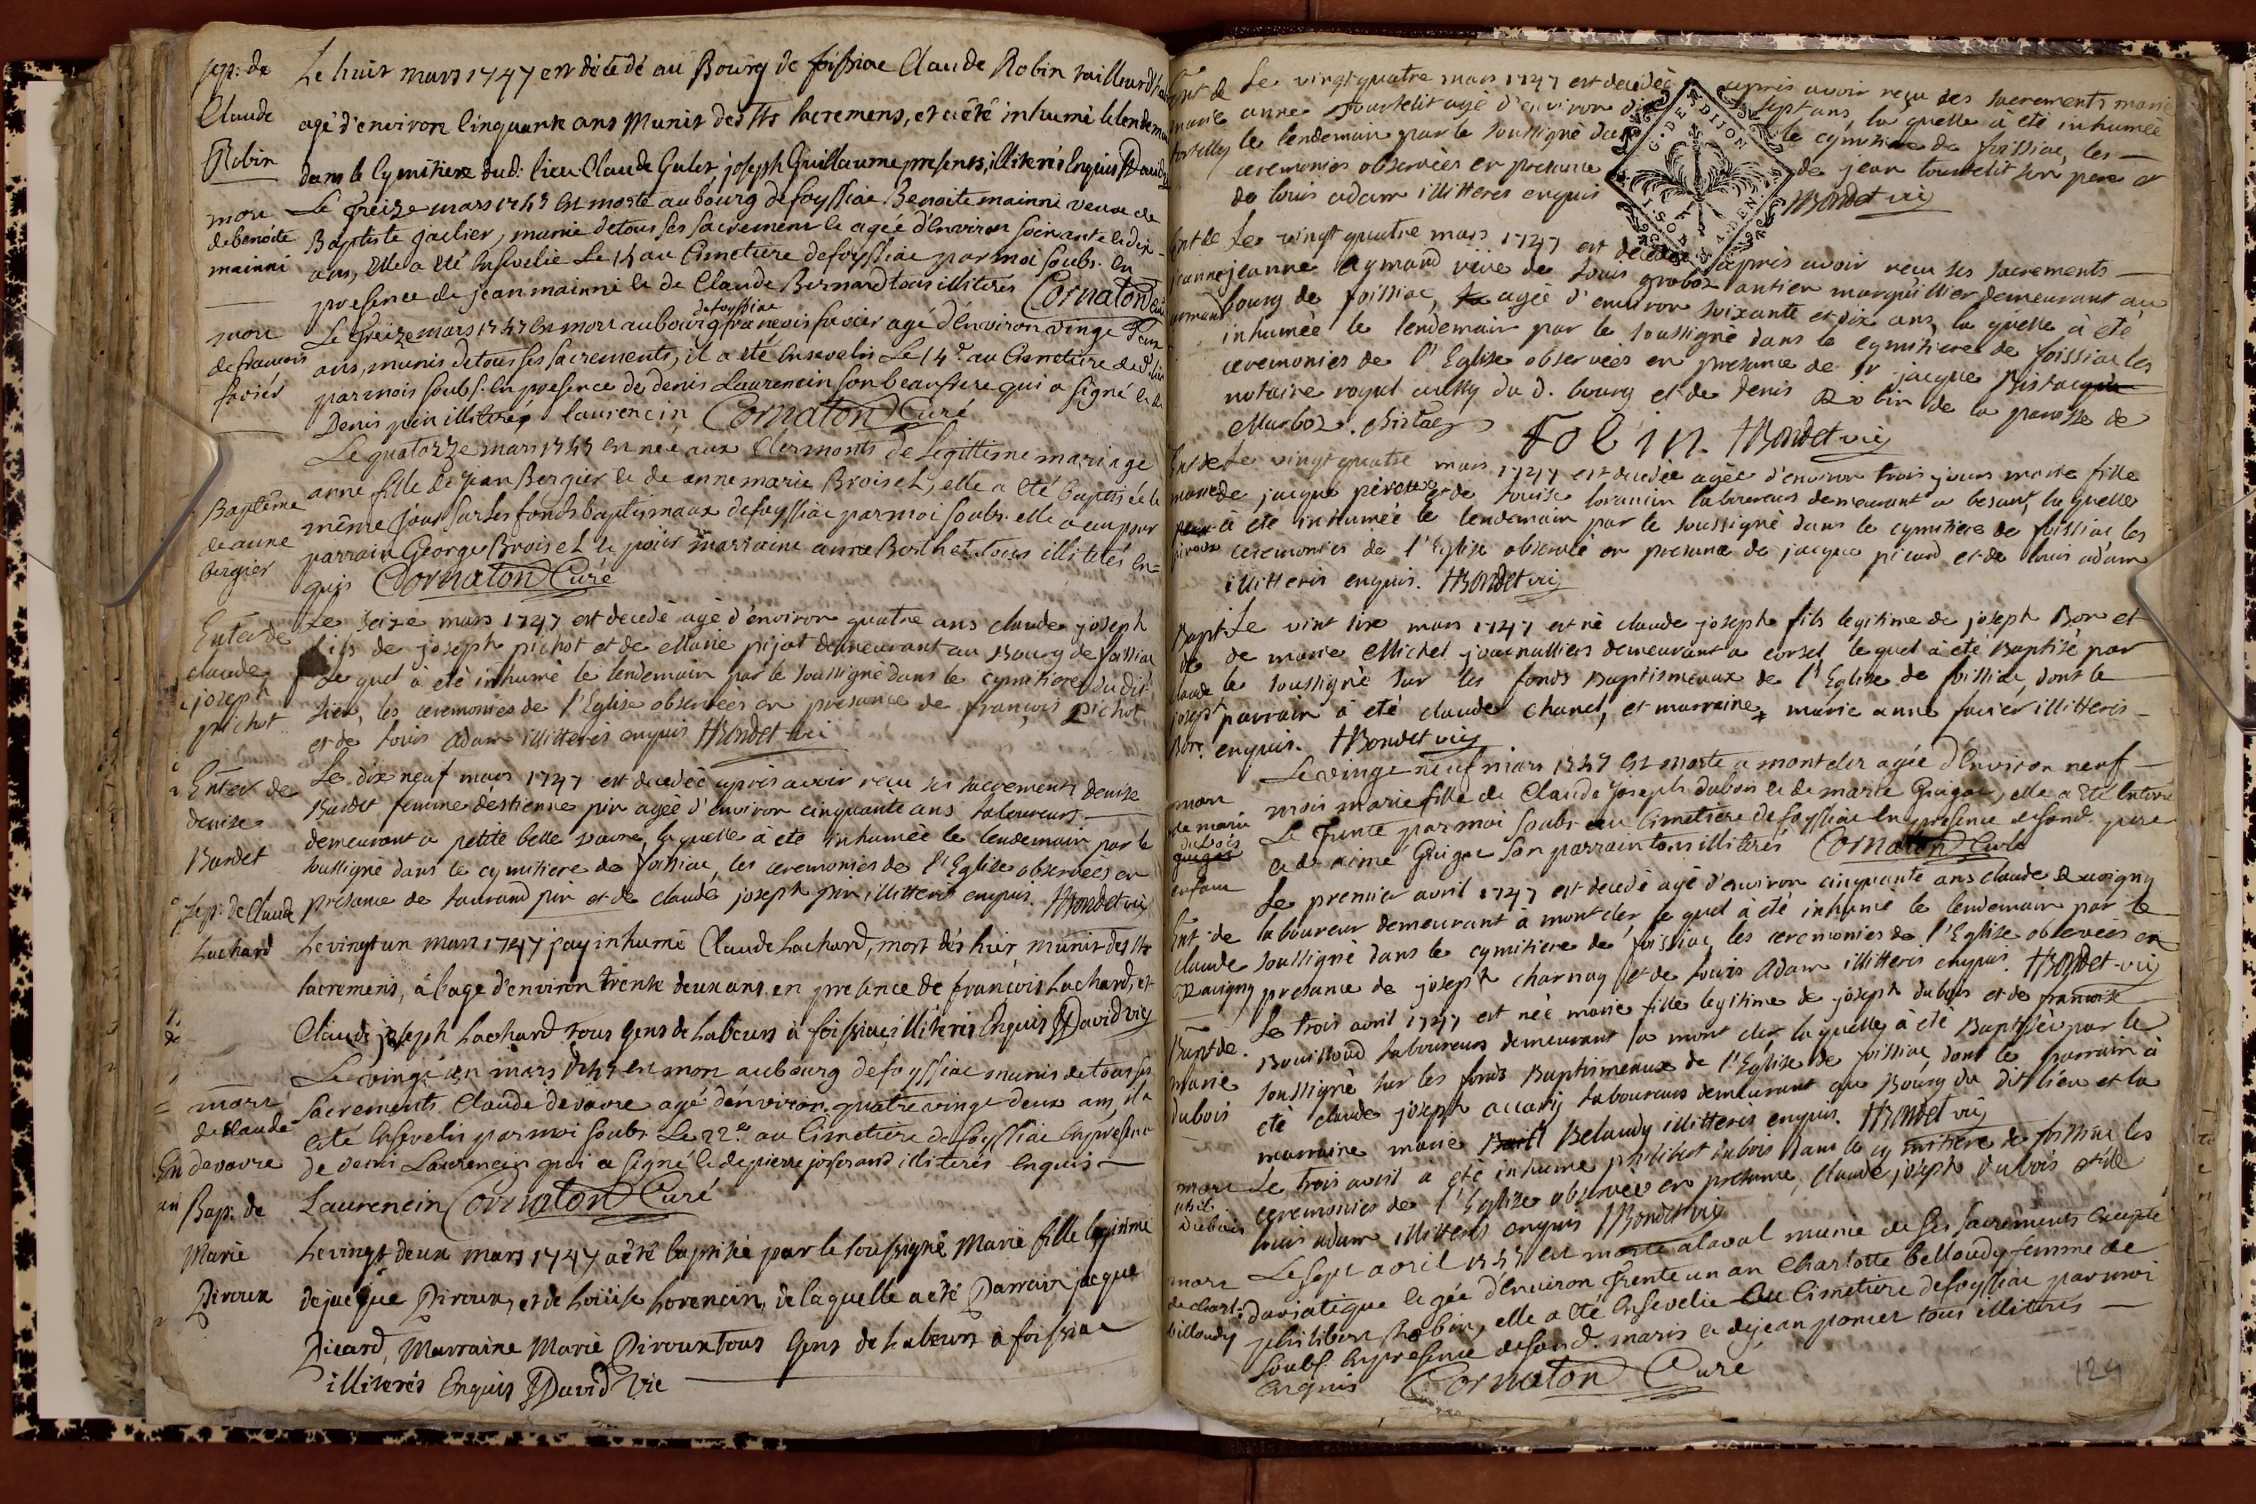 sep: de
Claude
Robin
Le huit mars 1747 est décédé au Bourg de foissiac Claude Robin tailleur d'h
agé d'environ Cinquante ans Munit des Sts sacremens, et a été inhumé le lendemain
dans le Cymitiere dud: lieu Claude Gulet joseph Guillaume presents, illiterés Enquis David
mort
de benoite
mainni
Le treize mars 1747 est morte au bourg de foyssiac Benoite mainni veuve de
Baptiste jaclier, munie de tous ses sacrements et agée d'Environ soixante et dix
ans, Elle a été Ensevelie Le 14 au Cimetiere de foyssiac par moi soubs. En
presence de jean mainni et de Claude Bernard tous illiterés Cornaton Curé
mort
de francois
favier
de foyssiac
Le treize mars 1747 est mort au bourg francois favier agé d'Environ vingt deux
ans, munis de tous ses sacrements, il a été Ensevelis Le 14e au Cimetiere du d. lieu
par mois soubs. En presence de denis Laurencin son beaufrere qui a signé et de
Denis pin illiteré laurencin Cornaton Curé
Baptême
de anne
bergier
Le quatorze mars 1747 est née aux Clermonts de Legittime mariage
anne fille de jean Bergier et de anne marie Broiset, elle a été baptisée le
même jour sur les fonds baptismaux de foyssiac par moi soubs. elle a eu pour
parrain George Broiset et pour marraine anne Berthet tous illiterés en=
quis Cornaton Curé
Enter de
claude
joseph
pichot
Le seize mars 1747 est decedé agé d'environ quatre ans claude joseph
fils de joseph pichot et de Marie pijat demeurant au Bourg de foissiac
le quel à eté inhumé le lendemain par le soussigné dans le cymitiere du dit
lieu, les ceremonies de l'Eglise observées en presance de françois pichot
et de louis Adam illitterés enquis Bondet vic
Enter de
denise
Bandet
Le dix neuf mars 1747 est decedée après avoir reçu ses sacrements denise
Bandet femme d'estienne pin agée d'environ cinquante ans laboureurs
demeurant a petite belle vavre, la quelle à eté inhumée le lendemain par le
soussigné dans le cymitiere de foissiac, les ceremonies de l'Eglise observées en
presance de laurand pin et de claude joseph pin illitterés enquis. Bondet vic
sep: de Claude
Lachard
Le vingt un mars 1747 j'ay inhumé Claude Lachard, mort dés hier, munit des Sts
sacremens, à l'age d'environ trente deux ans. en presence de françois Lachard, et
Claude joseph Lachard tous Gens de Labeurs à foissiac illiterés Enquis David vic
mort
de claude
devavre
Le vingt un mars 1747 est mort au bourg de foyssiac munis de tous ses
sacrements Claude devavre agé d'environ quatre vingt deux ans, il a
été Ensevelis par moi soubs. Le 22e au Cimetiere de foyssiac En presence
de denis Laurencin qui a signé et de pierre joserand illiterés Enquis
Laurencin Cornaton Curé
Bap: de
Marie
Piroux
Le vingt deux mars 1747 a été baptisée par le soussigné Marie fille legitime
de jacque Piroux, et de Loüise Lorencin, de laquelle a été Parrain jacque
Picard, Marraine Marie Piroux tous Gens de Labeurs à foissiac
illiterés Enquis David Vic
Ent de
marie
tortelly
Le vingt quatre mars 1747 est decedée après avoir reçu ses sacrements marie
anne tourtelit agé d'environ dix sept ans, la quelle à eté inhumée
le lendemain par le soussigné dans le cymitiere de foissiac, les
ceremonies observées en presance de jean tourtelit son pere et
de louis adam illitterés enquis Bondet vic
G. DE DIJON
Ent de
jeanne
armand
Le vingt quatre mars 1747 est decedée après avoir reçu ses sacrements
jeanne Aymand veve de louis groboz antien marguillier demeurant au
bourg de foissiac, agée d'environ soixante et dix ans, la quelle à été
inhumée le lendemain par le soussigné dans le cymitiere de foissiac les
ceremonies de l'Eglise observées en presance de Sr jacque Pistacq
notaire royal aussy du d. bourg et de denis Robin de la paroisse de
Marboz. Pistacq Robin Bondet vic
Ent de
marie
piroux
Le vingt quatre mars 1747 est decedée agée d'environ trois jours marie fille
de jacque piroux et de louise lorancin laboureurs demeurant a besant, la quelle
à eté inhumée le lendemain par le soussigné dans le cymitiere de foissiac les
ceremonies de l'Eglise observée en presance de jacque picard et de louis adam
illitterés enquis. Bondet vic
Bapt
de
claude
joseph
Bon
Le vint six mars 1747 est né claude joseph fils legitime de joseph Bon et
de marie Michel journalliers demeurant a corset, le quel à été Baptisé par
le soussigné sur les fonds Baptismeaux de l'Eglise de foissiac, dont le
parrain à eté claude chanel, et marraine marie anne favier illitterés
enquis. Bondet vic
mort
de marie
dubois
enfant
Le vingt neuf mars 1747 est morte a montcler agée d'Environ neuf
mois marie fille de Claude joseph dubois et de marie Guigue, elle a été Enterré
Le trente par moi soubs. au Cimetiere de foyssiac En presence de son d. pere
et de aimé Guigue son parrain tous illiterés Cornaton Curé
Ent: de
claude
Ravigny
Le premier avril 1747 est decedé agé d'environ cinquante ans claude Ravigny
laboureur demeurant à montcler le quel à été inhumé le lendemain par le
soussigné dans le cymitiere de foissiac les ceremonies de l'Eglise observées en
presance de joseph charnay et de louis Adam illitterés enquis. Bondet vic
Bapt de
marie
dubois
Le trois avril 1747 est née marie fille legitime de joseph dubois et de françoise
Bouilloud laboureurs demeurant a mont cler la quelle à été Baptisée par le
soussigné sur les fonds Baptismeaux de l'Eglise de foissiac dont le parrain à
eté claude joseph accarij laboureurs demeurant au Bourg du dit lieu et la
marraine marie Belaudy illitterés enquis. Bondet vic
mort
dubois
Le trois avril a eté inhumé philibert dubois dans le cymitiere de foissiac les
ceremonies de l'Eglise observée en presance, claude joseph dubois et de
louis adam illitterés enquis Bondet vic
mort
de charl:
billoudy
Le sept avril 1747 est morte a laval munie de ses sacrements Excepté
du viatique et agée d'Environ trente un an Charlotte belloudy femme de
philibert Robin, elle a été Ensevelie au Cimetiere de foyssiac par moi
soubs. En presence de son d. maris et de jean poncet tous illiterés
Enquis Cornaton Curé
124